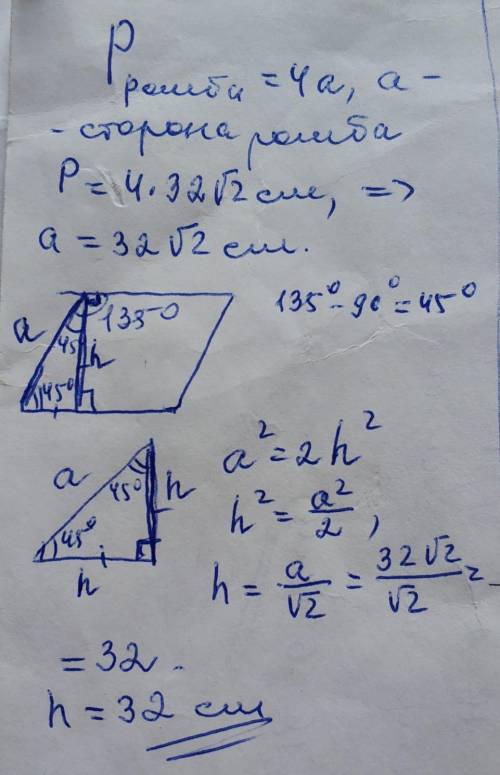 P ромба = 4a, a -
- сторона ромба
P = 4·32√2 см, =>
a = 32√2 см.
135° - 90° = 45°
a 45 135° h 45°
a 45° h 45° h
a² = 2h²
h² = a²/2,
h = a/√2 = 32√2/√2 =
= 32
h = 32 см